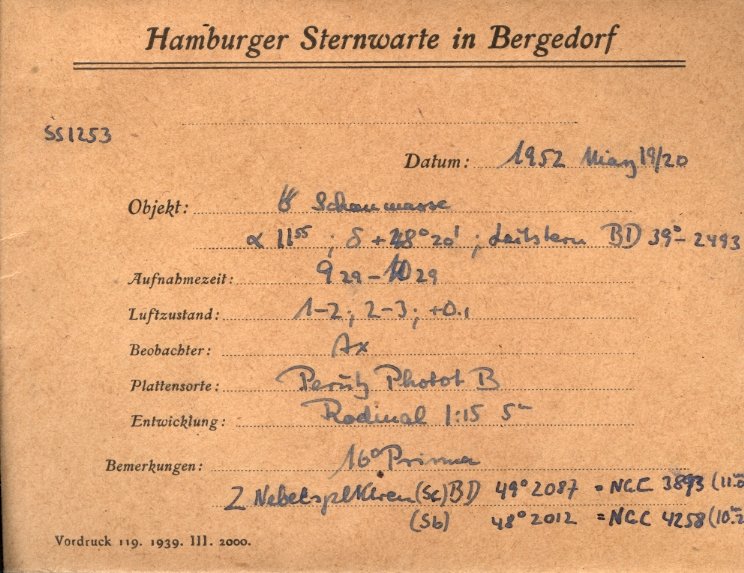 Hamburger Sternwarte in Bergedorf
SS1253
Datum: 1952 März 19/20
Objekt: Schaumasse
α 11⁵⁵ ; δ + 48° 20' ; Leitstern BD 39°-2493
Aufnahmezeit: 9 29 - 10 29
Luftzustand: 1-2 ; 2-3 ; +0.1
Beobachter: Ax
Plattensorte: Perutz Photot B
Entwicklung: Rodinal 1:15 5ᵐ
Bemerkungen: 16° Prisma
2 (Sc) BD 49° 2087 = NGC 3893 (11.
(Sb) 48° 2012 = NGC 4258 (10.
Vordruck 119. 1939. III. 2000.